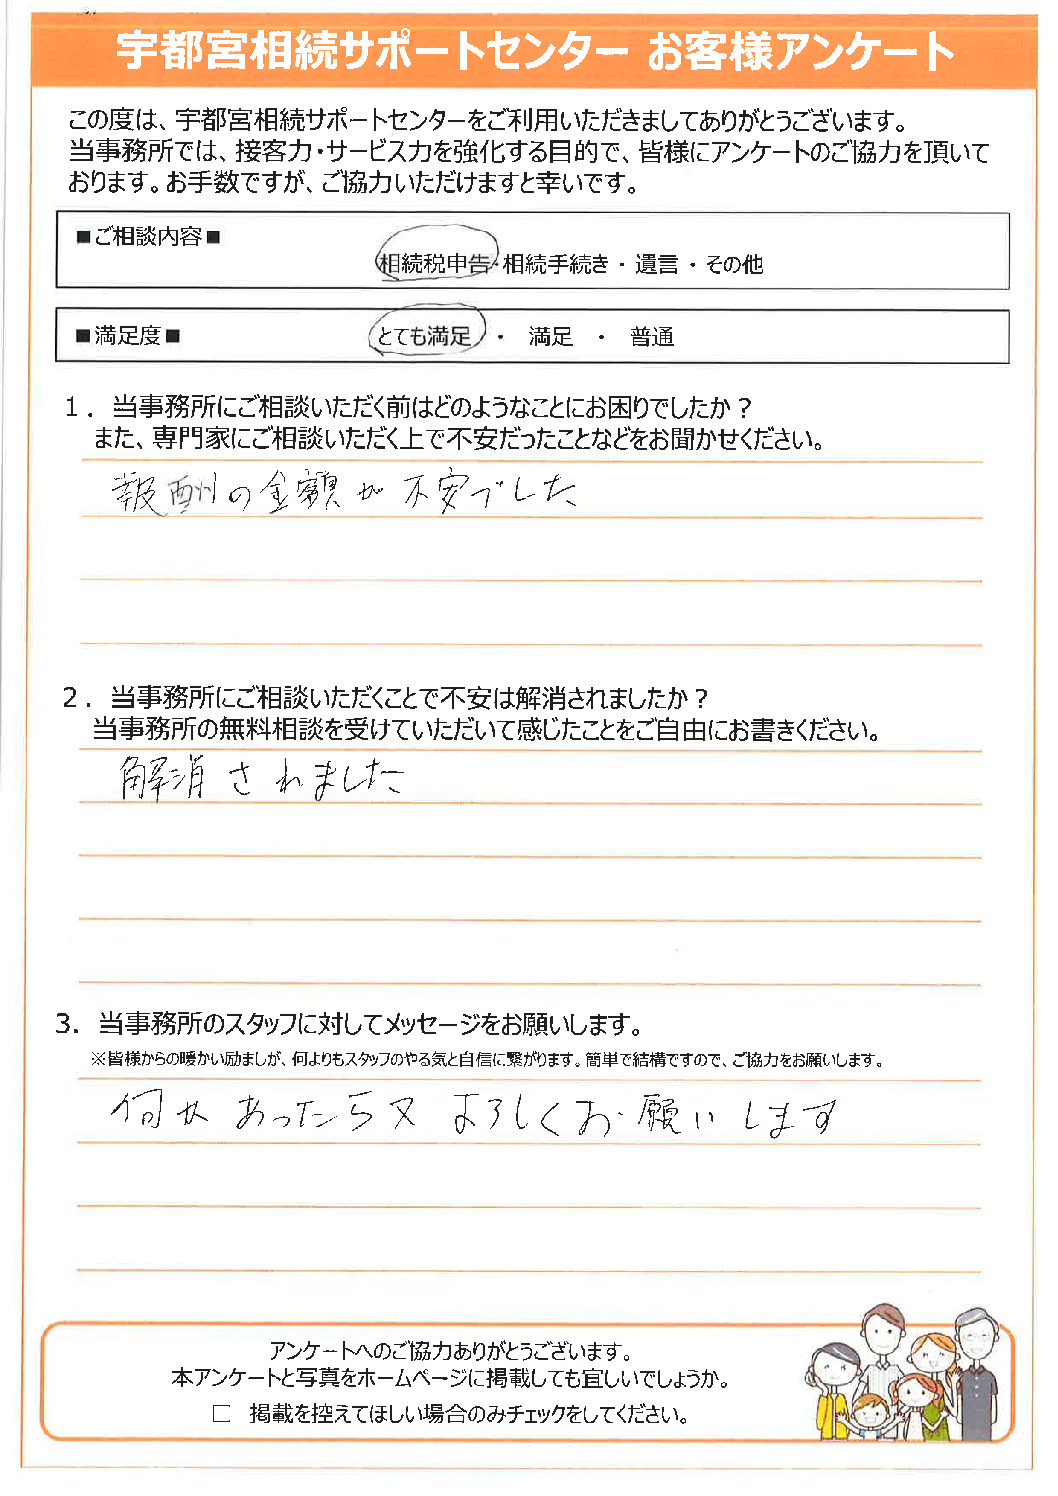 宇都宮相続サポートセンター お客様アンケート
この度は、宇都宮相続サポートセンターをご利用いただきましてありがとうございます。
当事務所では、接客力・サービス力を強化する目的で、皆様にアンケートのご協力を頂いて
おります。お手数ですが、ご協力いただけますと幸いです。
■ご相談内容■
相続税申告・相続手続き・遺言・その他
■満足度■ とても満足 ・ 満足 ・ 普通
1．当事務所にご相談いただく前はどのようなことにお困りでしたか？
また、専門家にご相談いただく上で不安だったことなどをお聞かせください。
報酬の金額が不安でした
2．当事務所にご相談いただくことで不安は解消されましたか？
当事務所の無料相談を受けていただいて感じたことをご自由にお書きください。
解消されました
3．当事務所のスタッフに対してメッセージをお願いします。
※皆様からの暖かい励ましが、何よりもスタッフのやる気と自信に繋がります。簡単で結構ですので、ご協力をお願いします。
何かあったら又よろしくお願いします
アンケートへのご協力ありがとうございます。
本アンケートと写真をホームページに掲載しても宜しいでしょうか。
□ 掲載を控えてほしい場合のみチェックをしてください。